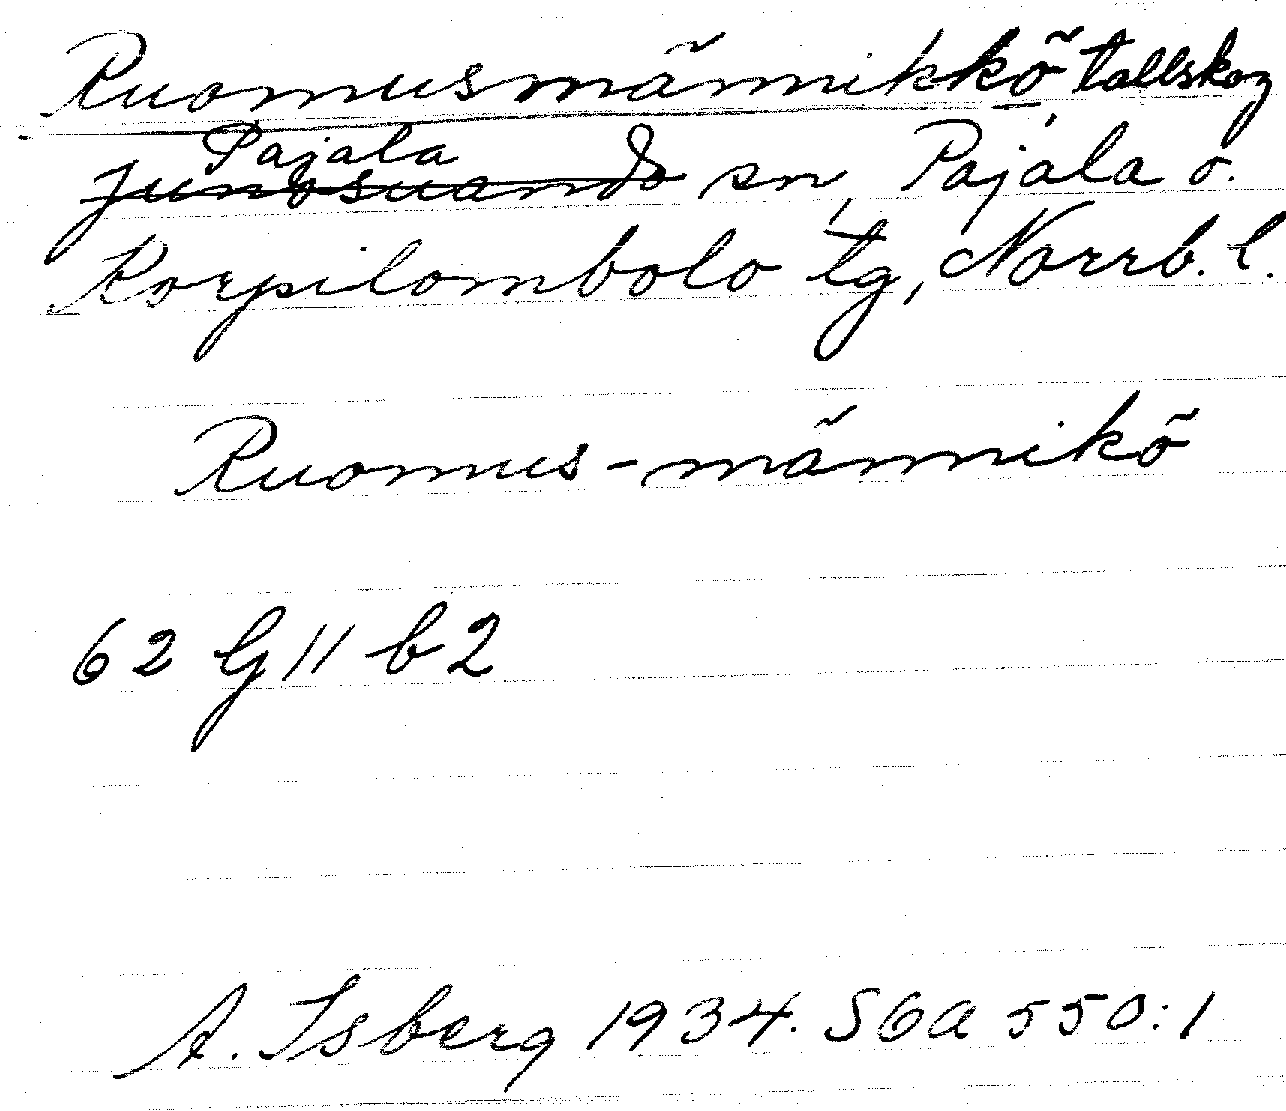 Ruomusmännikkö tallskog
Pajala
Junosuando sn, Pajala o.
Korpilombolo tg, Norrb. l.
Ruomus-männikö
62 G 11 b 2
A. Isberg 1934. SGA 550:1